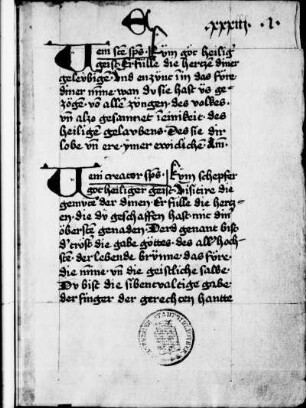 xxxiii · 1 ·
Veni scē sps · Kum got heilig
geist · Erfülle die hertze diner
gelevbigen · Und enzune in in das füre
diner mīne · wan du sie hast us ge-
zogen · vō allen zungen · des volkes ·
vn̄ also gesamnet in einikeit · des
heiligen gelavbens · Des sie dir
lobe vn̄ ere ymer ewicliche · Am̄ ·
Veni creator sps · Kum schepfer
got heiliger geist · Visitire die
gemüte der dinen · Erfulle die hertz-
en · die du geschaffen hast · mit din
öbersten genaden · Der d genant bist
d' trost · die gabe gottes · des all' hoch-
sten · der lebende brunne · das füre ·
die mīne · vn̄ die geistliche salbe ·
Du bist die sibenvaltige gabe ·
der finger der gerechten hantte